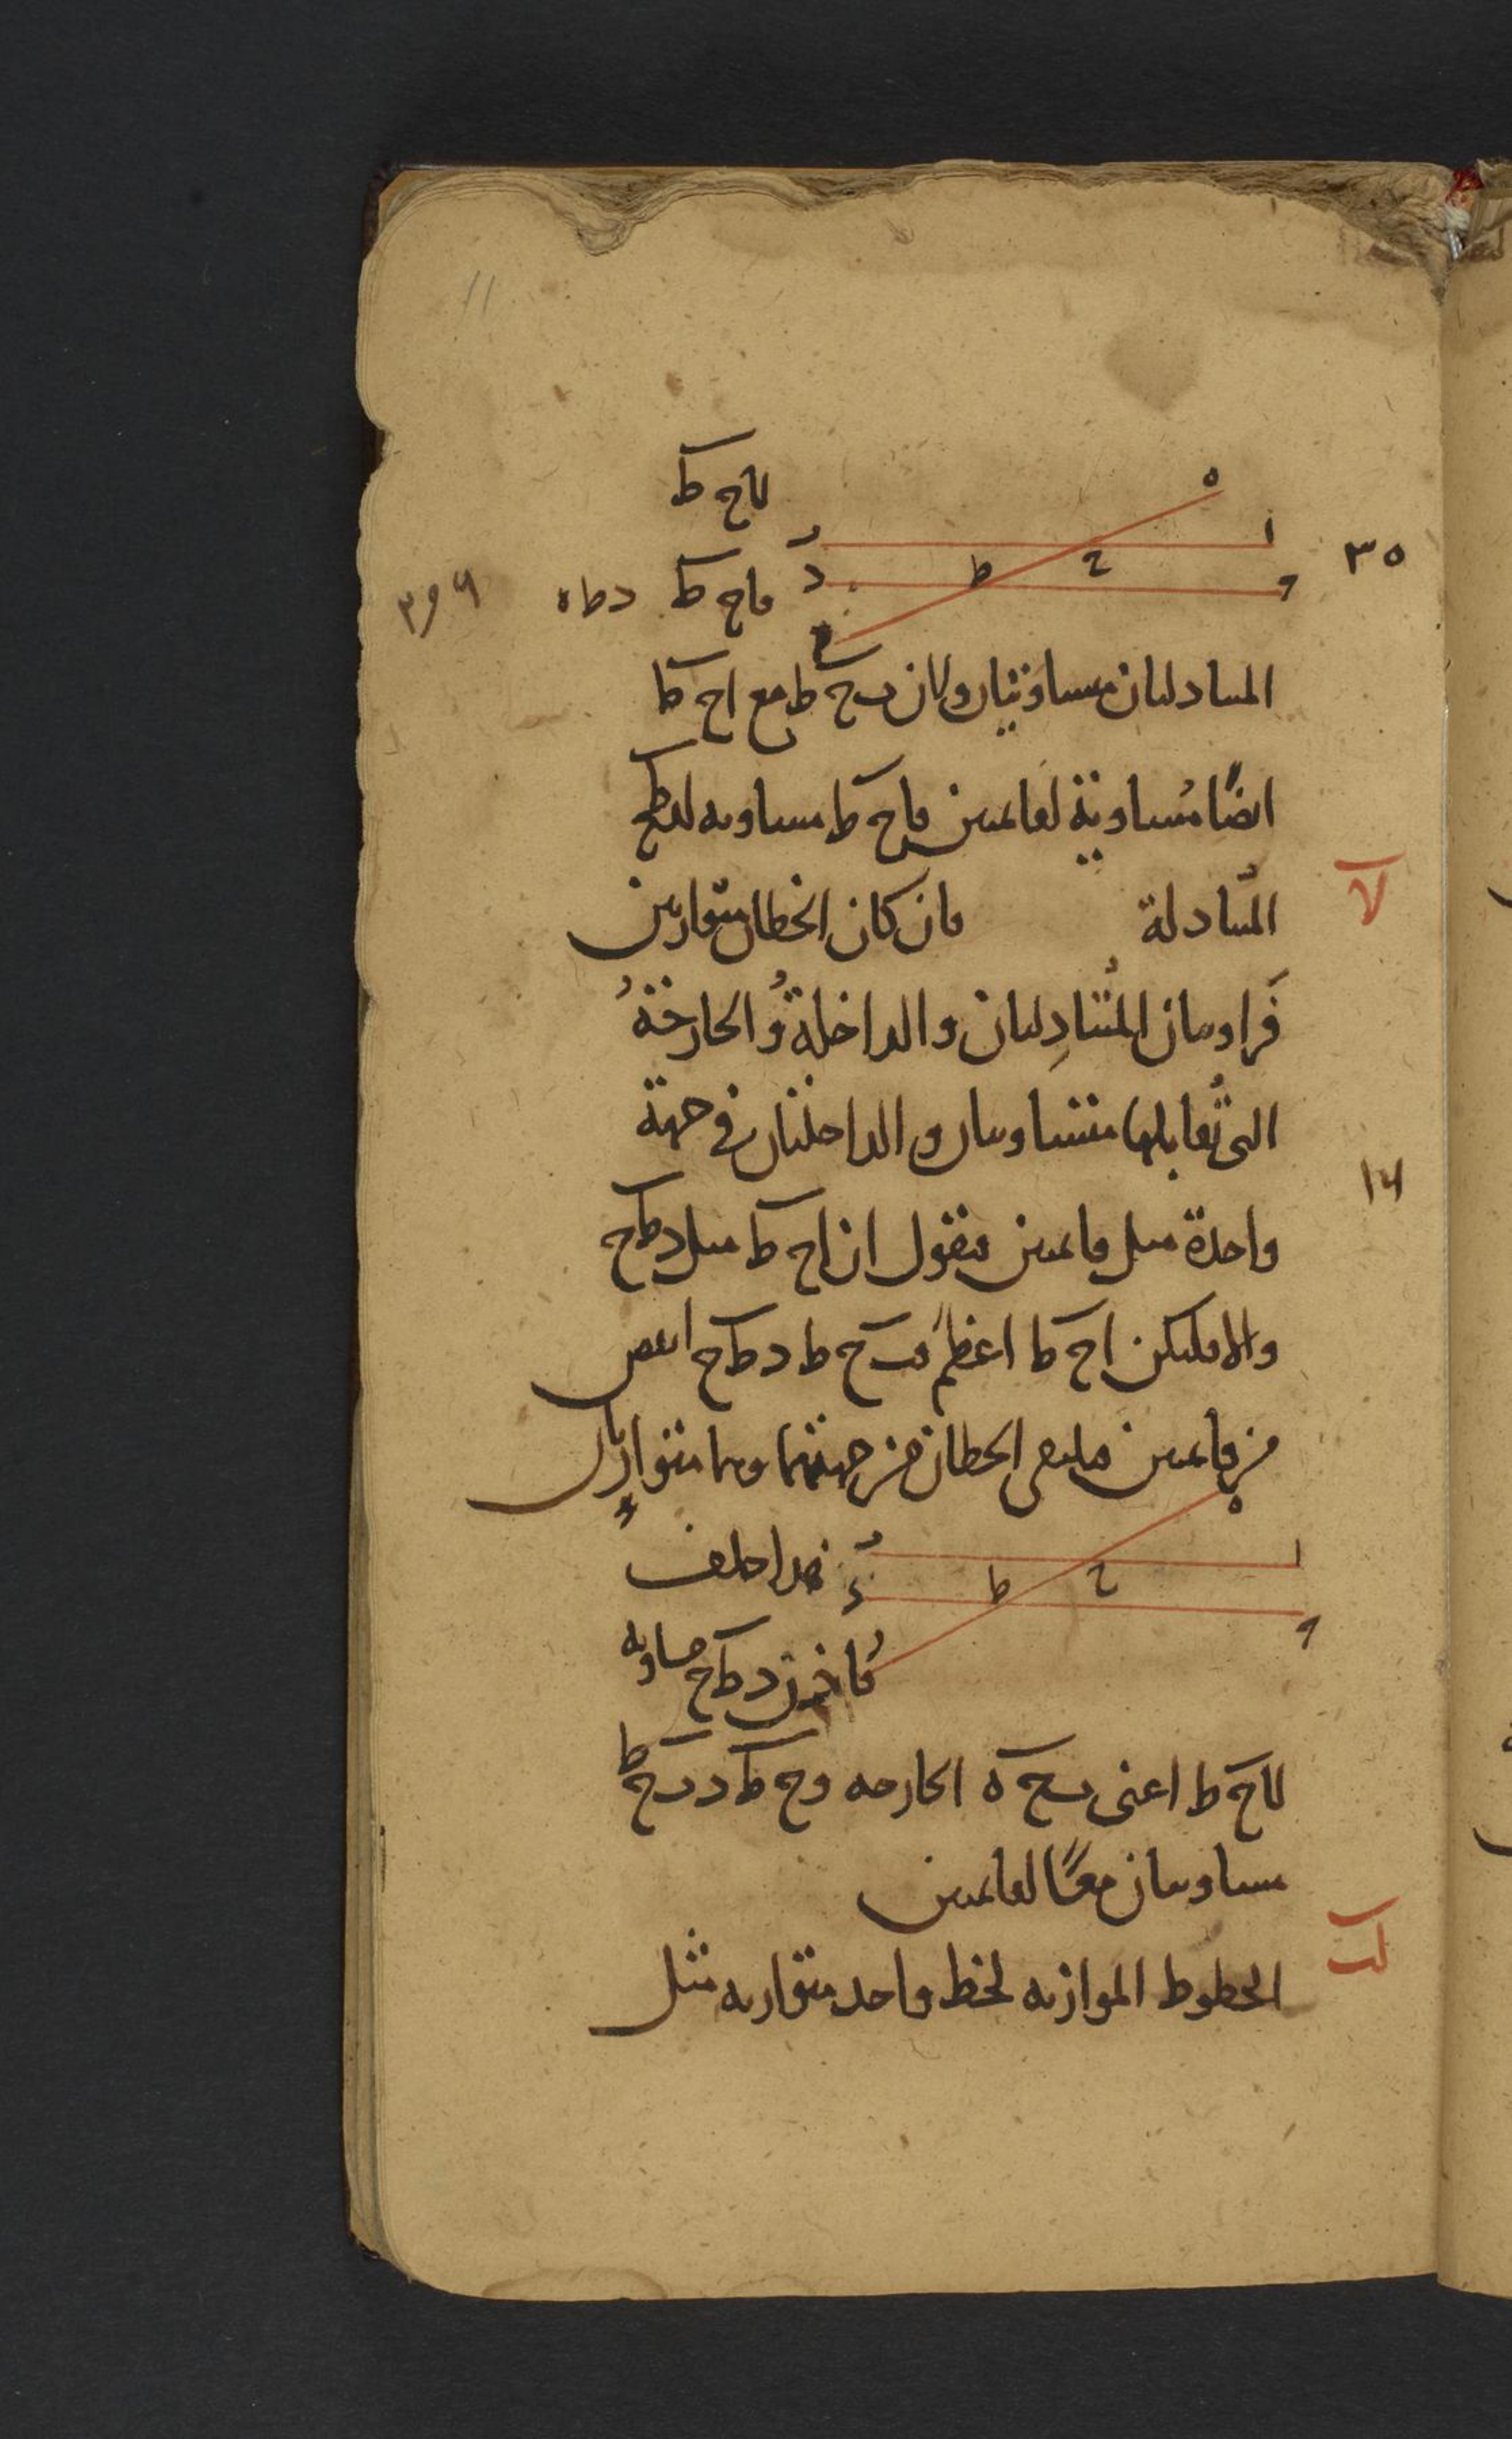 11
لاح ط
فاح ط دطه
٣٥
المتبادلتان متساويتان ولان بح ط مع اح ط
ايضًا مُساوية لقائمتين فاح ط مساويه لدطح
المتبادلة فان كان الخطان متوازيين
فَزاويتان المُتبَادِلتان والداخلة وُالخارجة
التى تُقابلها متساويتان والداخلتان فى جهة
واحدة مثل قائمتين فنقول ان اح ط مثل دطح
والا فليكن اح ط اعظم فبح ط دطح انقص
من قائمتين فيلتقى الخطان من جهتهما وهما متوازيان
هذا خلف
فاذن دطح مساويه
لاح ط اعنى بح ه الخارجه وح ط د بح ط
مساويتان معًا لقائمتين
الخطوط الموازيه لخط واحد متوازيه مثل
لا
١٤
لب
ا
ه
ح
ط
د
ا
ه
ح
ط